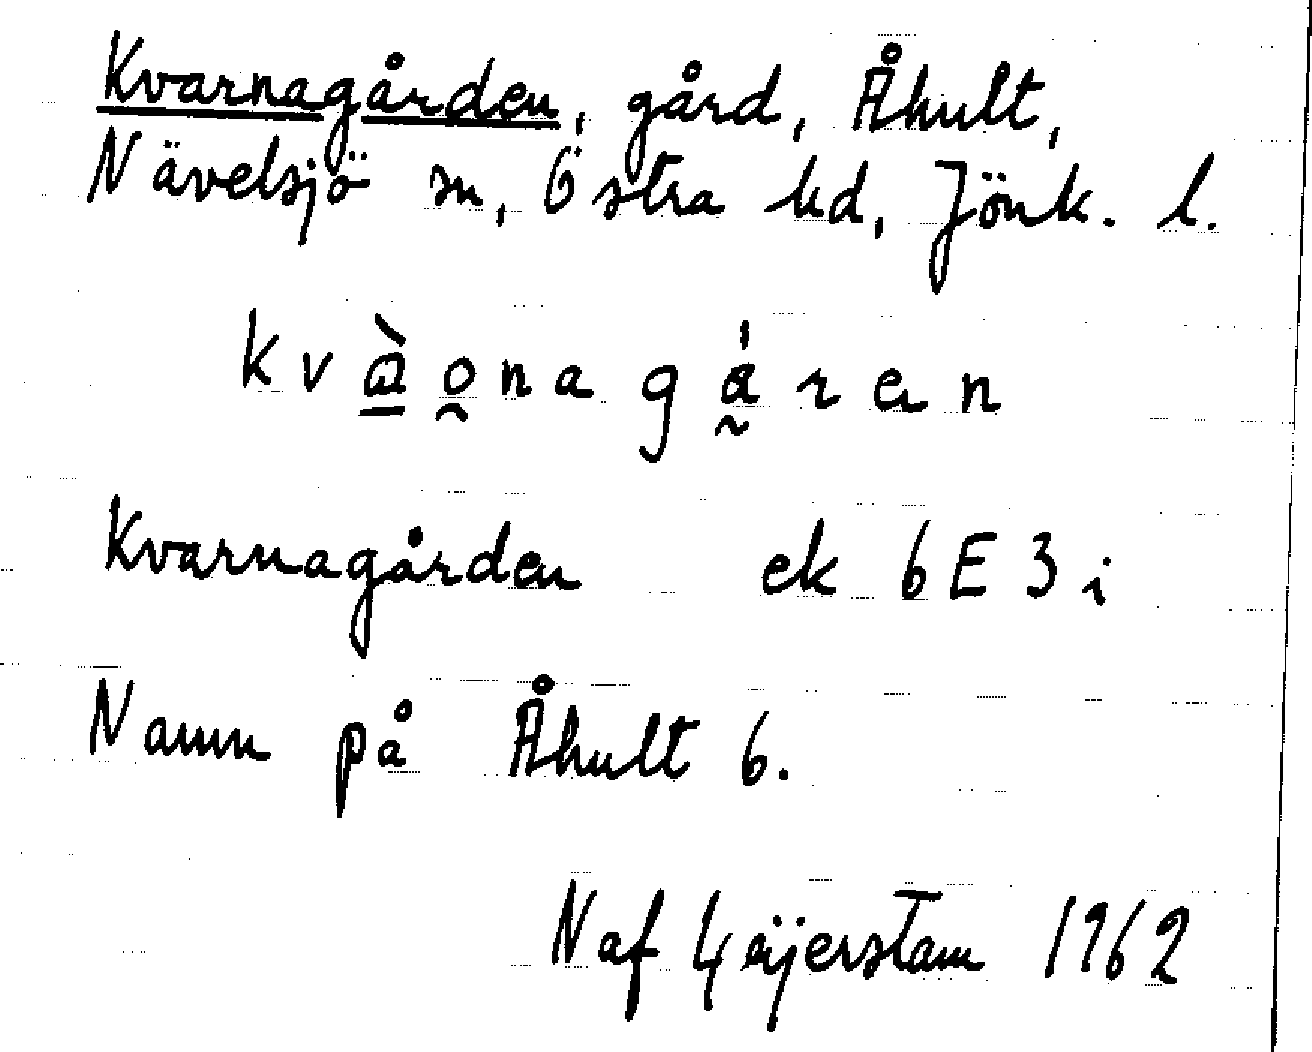 Kvarnagården, gård, Åhult,
Nävelsjö sn, Östra hd, Jönk. l.
kvàonagáren
Kvarnagården ek 6E3i
Namn på Åhult 6.
N af Geijerstam 1962